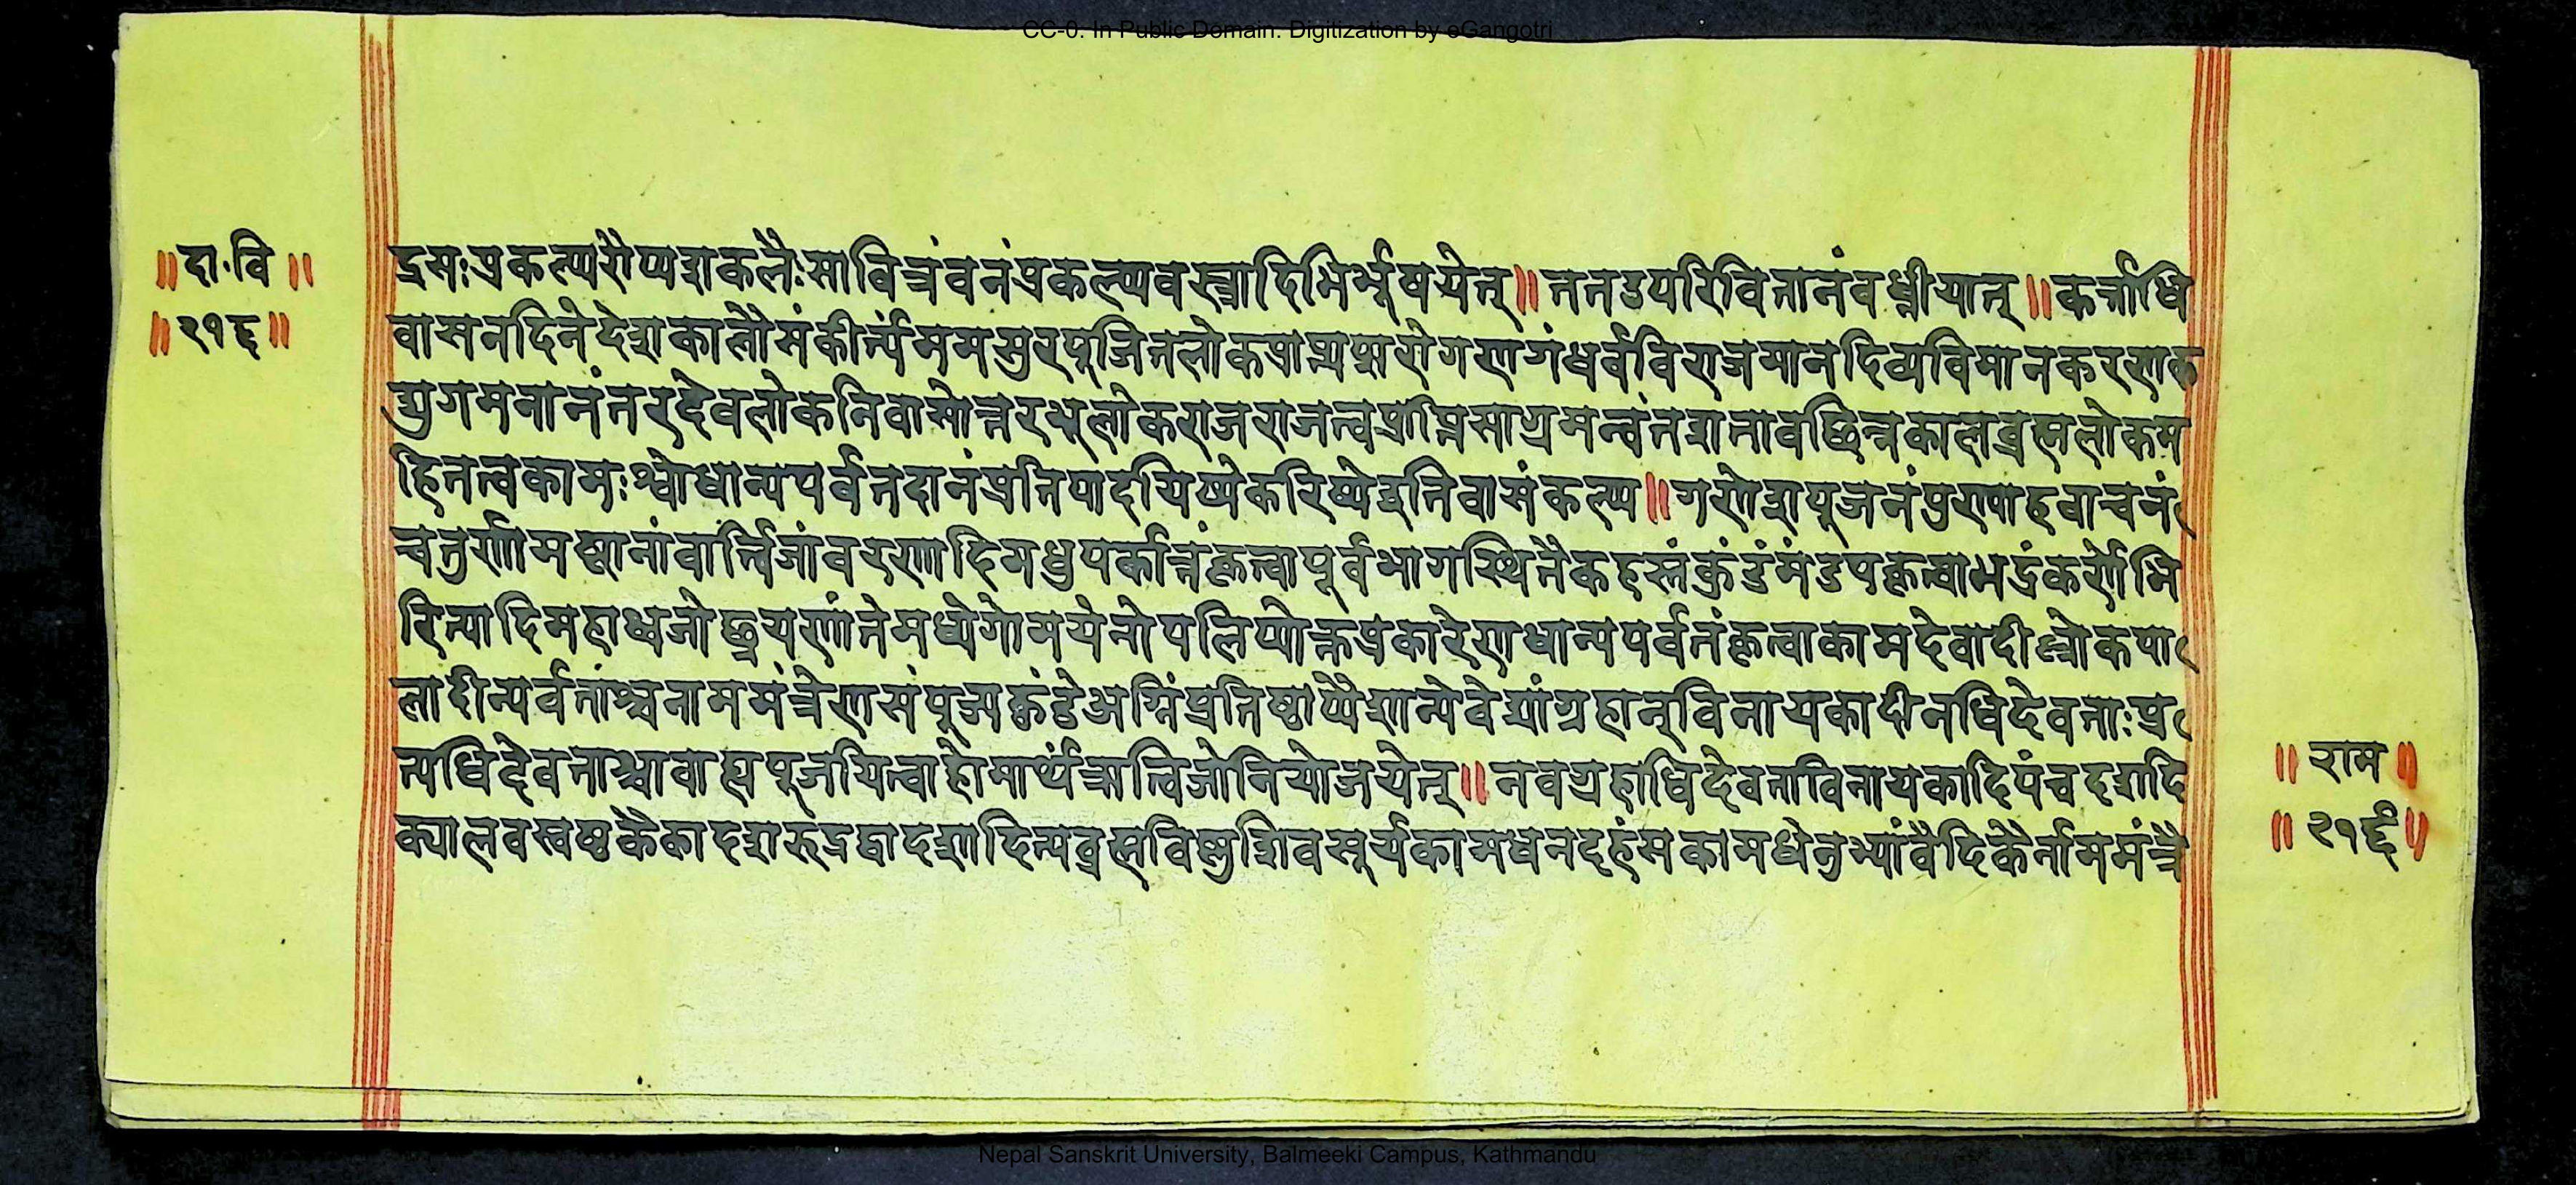 CC-0. In Public Domain. Digitization by eGangotri
॥दा॰वि॥
॥२१६॥
द्रमःप्रकल्प्यरौप्यशकलैःसावित्रंवनंप्रकल्प्यवस्त्रादिभिर्भूषयेत्॥ततउपरिवितानंवध्नीयात्॥कर्त्ताधि
वासनदिनेदेशकालौसंकीर्त्यममसुरपूजितलोकप्राप्त्यप्सरोगणगंधर्वविराजमानदिव्यविमानकरणक
द्युगमनानंतरदेवलोकनिवासोत्तरभूलोकराजराजत्वप्राप्तिसाग्रमन्वंतरशतावछिन्नकालब्रह्मलोकम
हितत्वकामःश्वोधान्यपर्वतदानंप्रतिपादयिष्येकरिष्येइतिवासंकल्प्य॥गणेशपूजनंपुण्याहवाचनं
चतुर्णामष्टानांवार्त्विजांवरणादिमधुपर्कान्तंकृत्वापूर्वभागस्थितैकहस्तंकुंडंमंडपकृत्वाभद्रंकर्णेभि
रित्यादिमहाध्वजोछ्रयणांतेमध्येगोमयेनोपलिप्योक्तप्रकारेणधान्यपर्वतंकृत्वाकामदेवादील्लोकपा
लादीन्पर्वतांश्चनाममंत्रेणसंपूज्यकुंडेअग्निंप्रतिष्ठाप्यैशान्येवेद्यांग्रहान्विनायकादीनधिदेवताःप्र
त्यधिदेवताश्चावाह्यपूजयित्वाहोमार्थंऋत्विजोनियोजयेत्॥नवग्रहाधिदेवताविनायकादिपंचदशदि
क्पालवस्वष्टकैकादशरुद्रद्वादशादित्यब्रह्मविष्णुशिवसूर्यकामधनदहंसकामधेनुभ्यांवैदिकैर्नाममंत्रै
॥राम॥
॥२१६॥
Nepal Sanskrit University, Balmeeki Campus, Kathmandu